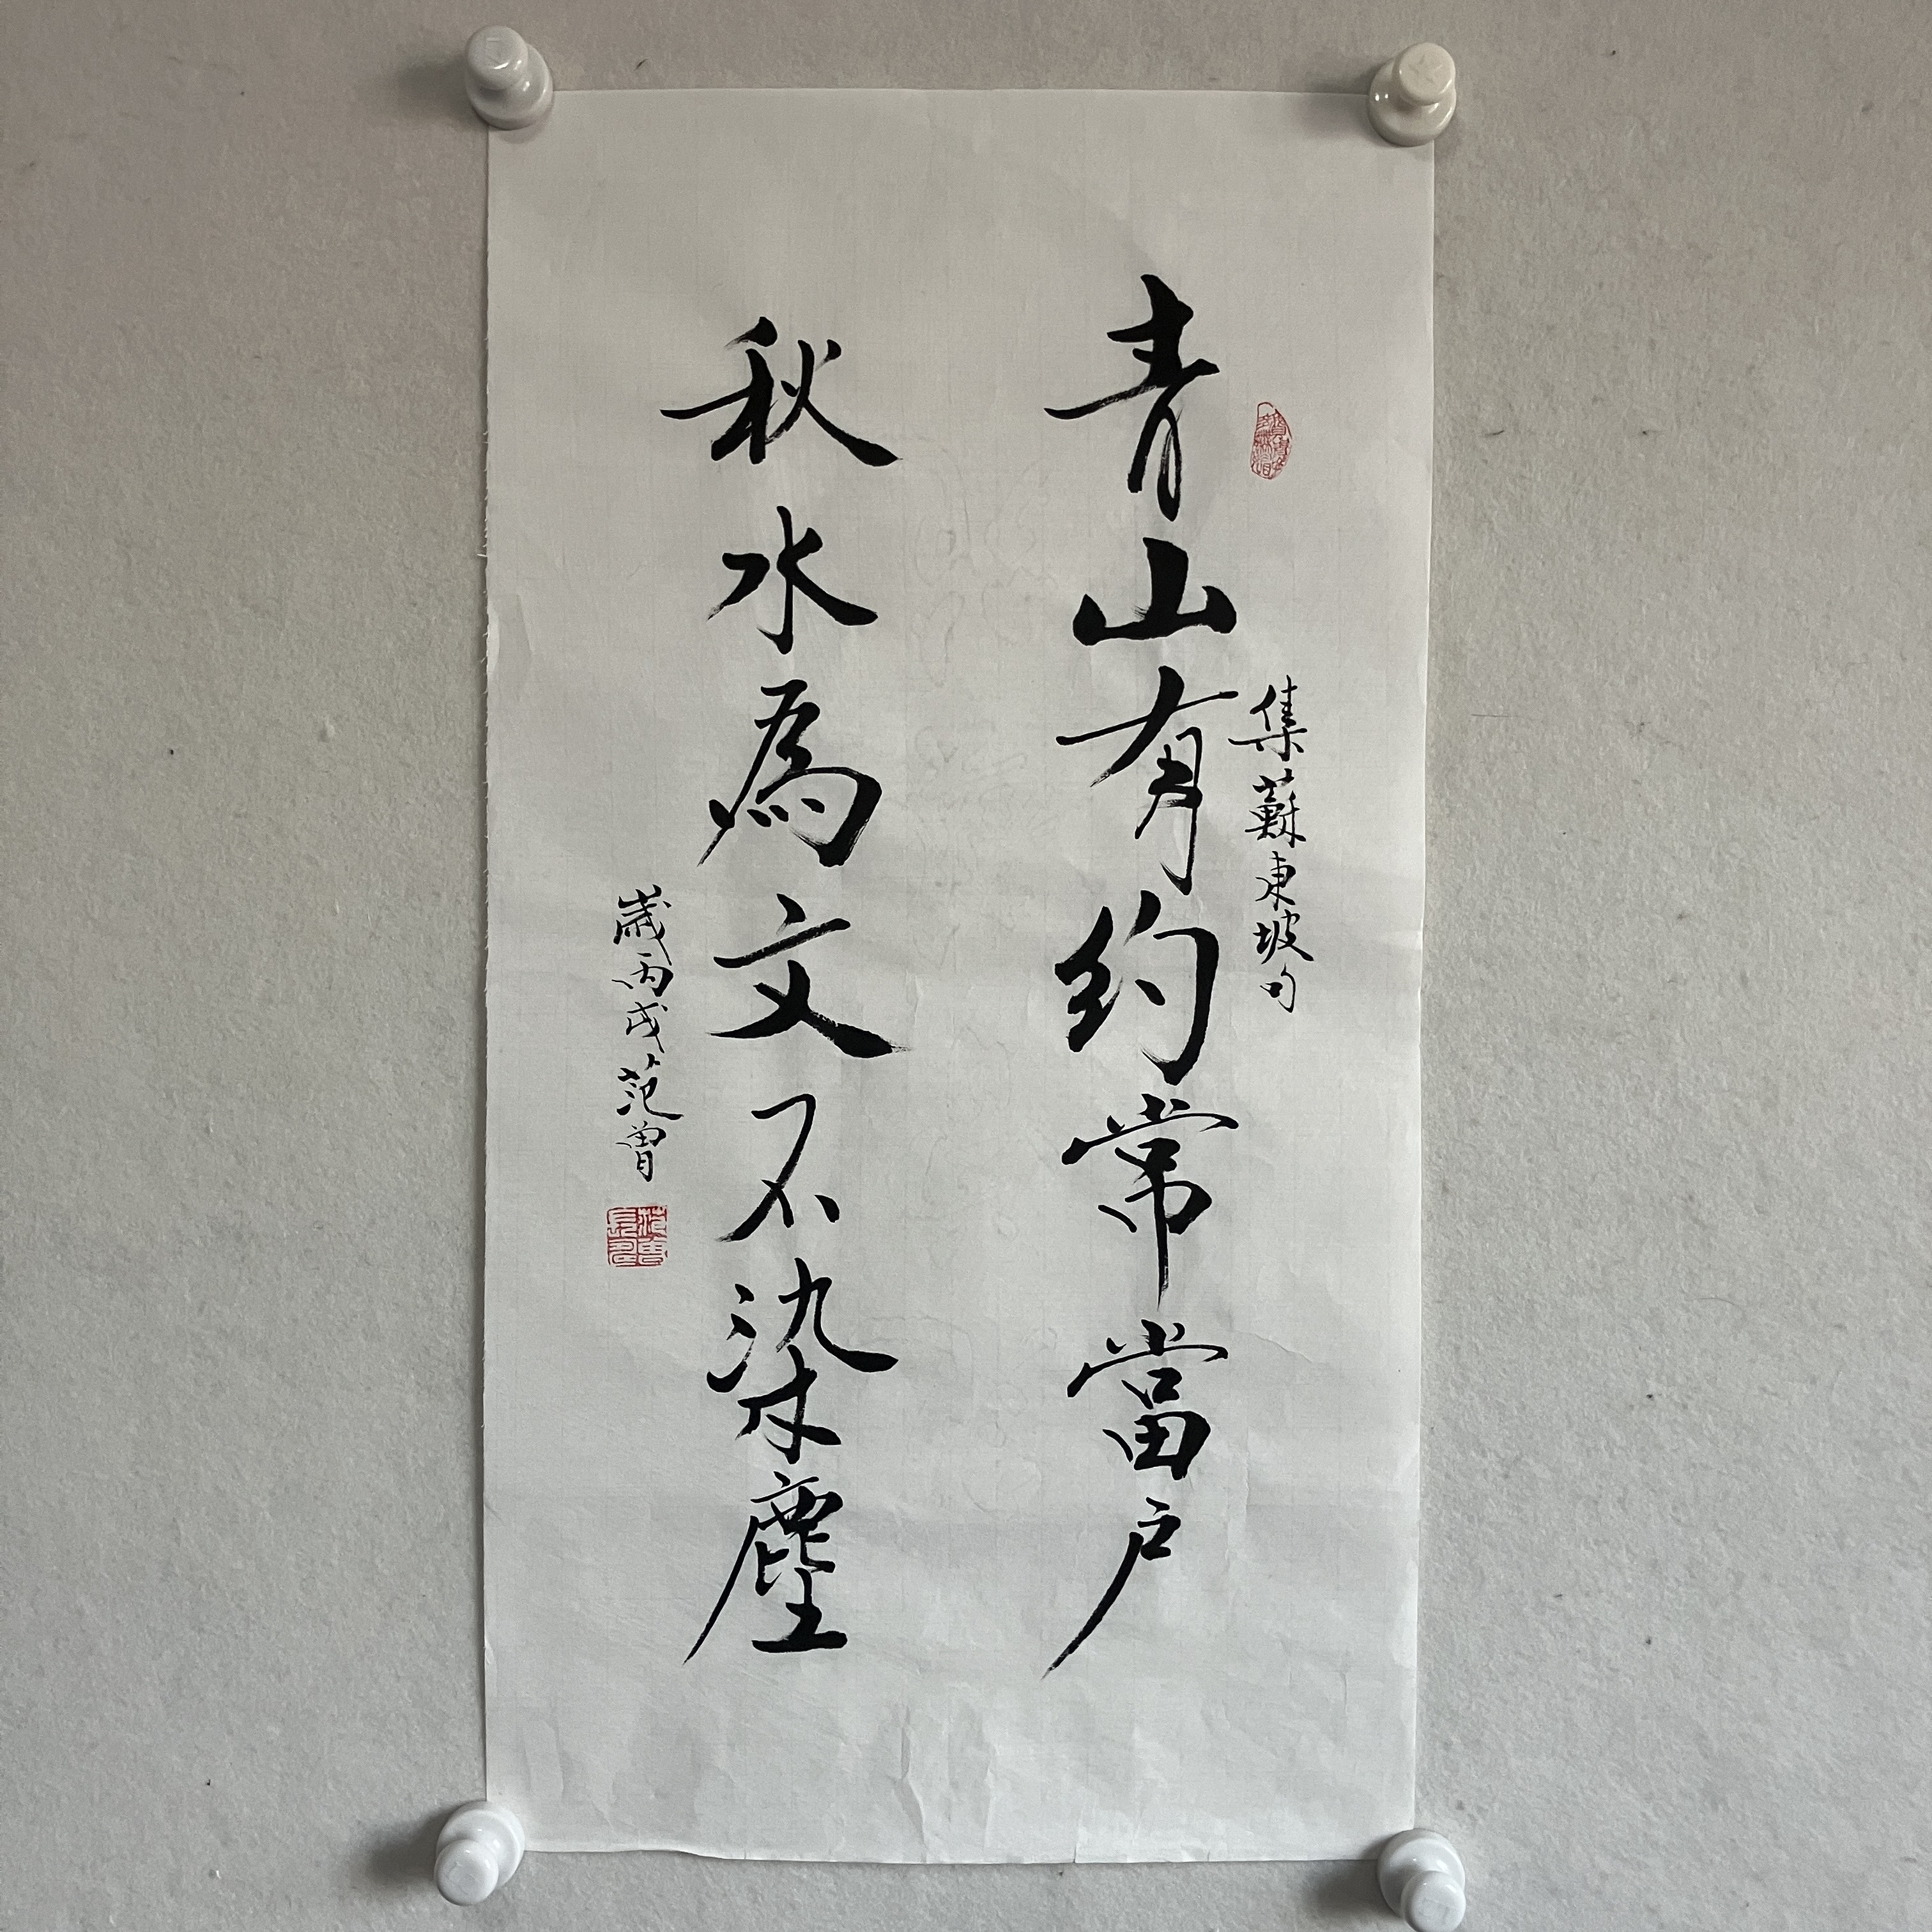 集蘇東坡句
青山有約常當戶
秋水為文不染塵
歲丙戌范曾